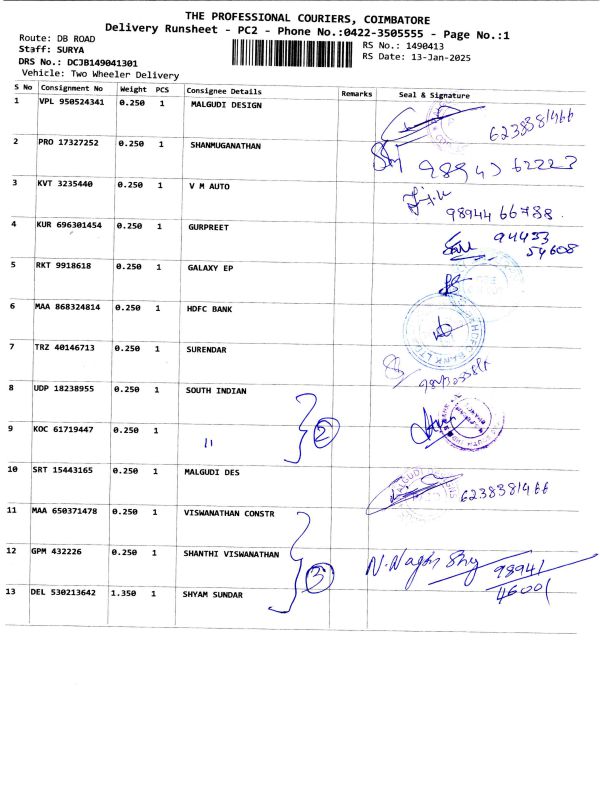 THE PROFESSIONAL COURIERS, COIMBATORE
Delivery Runsheet - PC2 - Phone No.:0422-3505555 - Page No.:1
Route: DB ROAD
RS No.: 1490413
Staff: SURYA
RS Date: 13-Jan-2025
DRS No.: DCJB149041301
Vehicle: Two Wheeler Delivery
S No Consignment No Weight PCS Consignee Details Remarks Seal & Signature
1 VPL 950524341 0.250 1 MALGUDI DESIGN
6238381466
2 PRO 17327252 0.250 1 SHANMUGANATHAN
62223
3 KVT 3235440 0.250 1 V M AUTO
98944 66788
4 KUR 696301454 0.250 1 GURPREET
94433
54608
5 RKT 9918618 0.250 1 GALAXY EP
6 MAA 868324814 0.250 1 HDFC BANK
HDFC BANK LTD
7 TRZ 40146713 0.250 1 SURENDAR
8 UDP 18238955 0.250 1 SOUTH INDIAN
2
9 KOC 61719447 0.250 1 "
10 SRT 15443165 0.250 1 MALGUDI DES
MALGUDI
6238381466
11 MAA 650371478 0.250 1 VISWANATHAN CONSTR
12 GPM 432226 0.250 1 SHANTHI VISWANATHAN
3
98941
46001
13 DEL 530213642 1.350 1 SHYAM SUNDAR